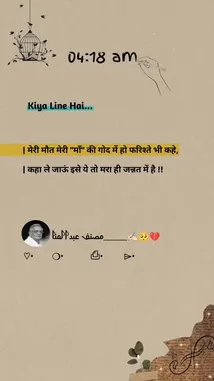 04:18 am
Kiya Line Hai...
| मेरी मौत मेरी "माँ" की गोद में हो फरिश्ते भी कहे,
| कहा ले जाऊं इसे ये तो मरा ही जन्नत में है !!